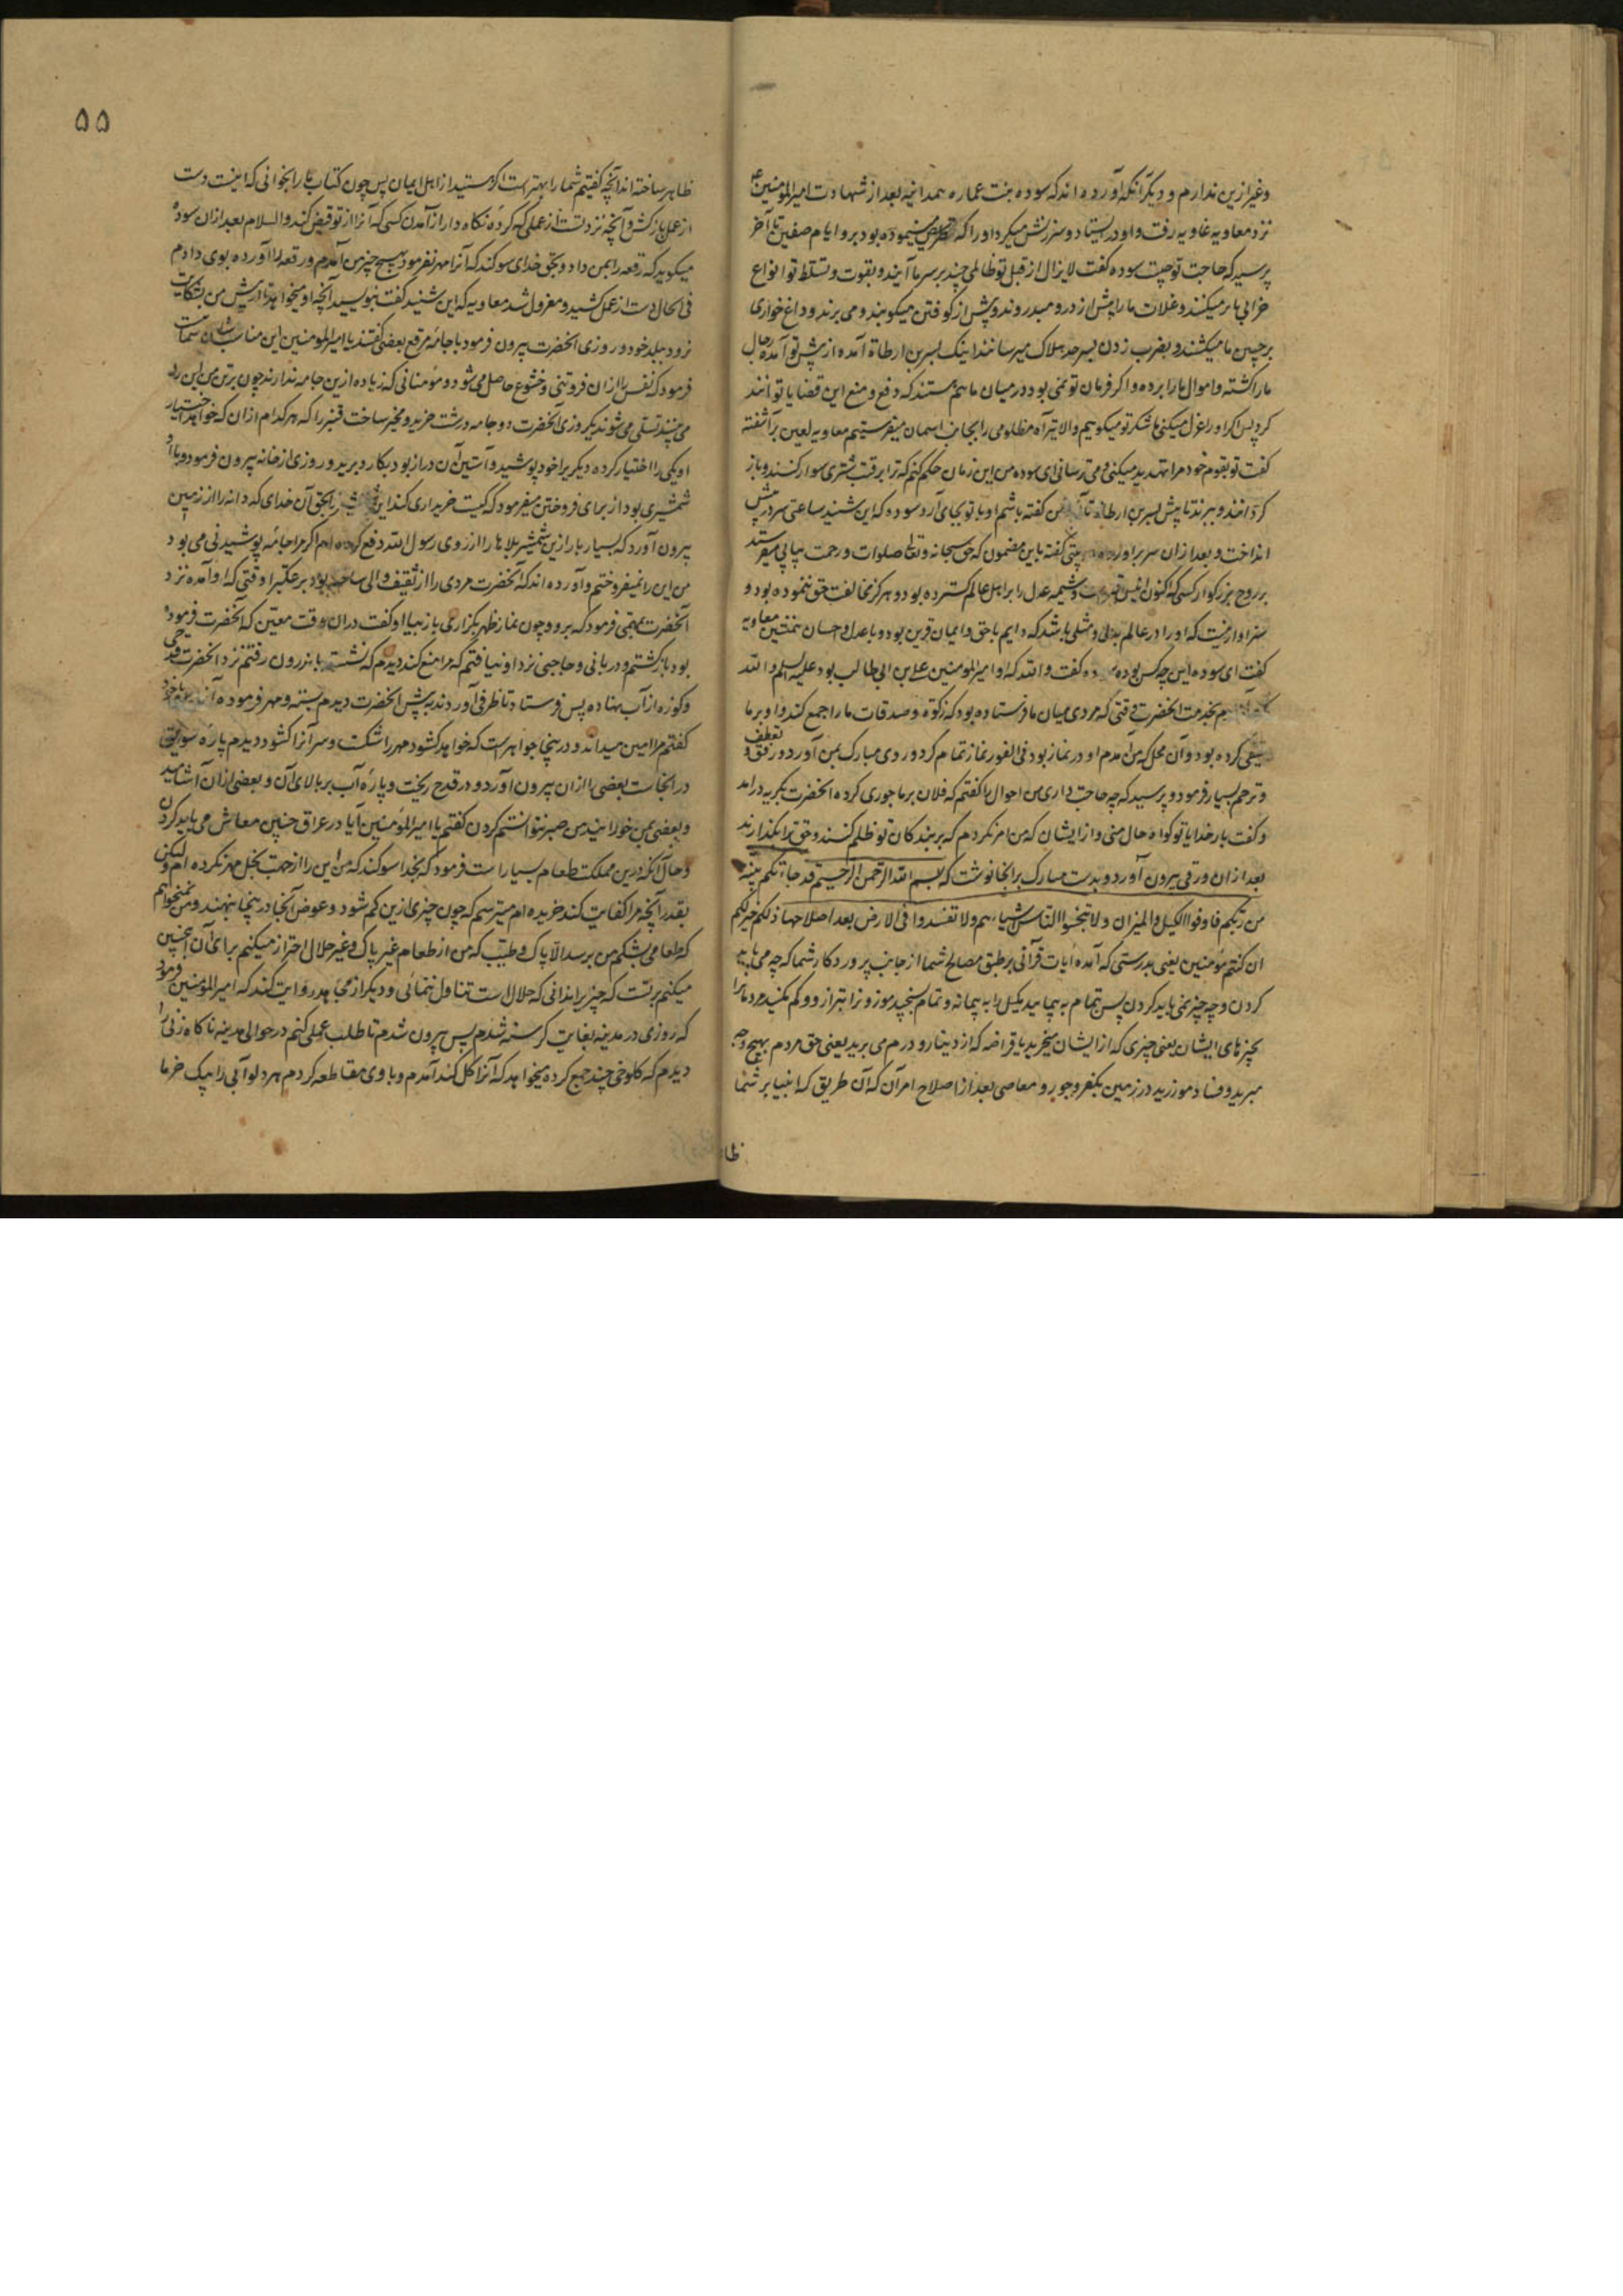 وغیر ازین ندارم و دیگر آنکه آورده اند که سوده بنت عماره همدانیه بعد از شهادت امیرالمومنین ع
نزد معاویه غاویه رفت و او در ایستاد و سرزنش میکرد او را که تحریص مینموده بود برو ایام صفین تا آخر
پرسید که حاجت تو چیست سوده گفت لایزال از قبل تو ظالمی چند بر سر ما آیند و بقوت و تسلط تو انواع
خرابی ما میکنند و غلات ما را پیش از درو میدروند و پیش از کوفتن میکوبند و می برند و داغ خواری
بر جبین ما میکشند و بضرب زدن بسرحد هلاک میرسانند اینک بسر بن ارطاة آمده از پیش تو آمده رجال
ما را کشته و اموال ما را برده و اگر فرمان تو نمی بود در میان ما هم هستند که دفع و منع این قضایا توانند
کرد پس اگر او را عزل میکنی ما شکر تو میکوییم والا تیر آه مظلومی را بجانب اسمان میفرستیم معاویه لعین برآشفته
گفت تو بقوم خود مرا تهدید میکنی و می ترسانی ای سوده من این زمان حکم کنم که ترا بر قتب شتری سوار کنند و باز
کردانند و ببرند تا پیش بسر بن ارطاة تا آنچه من گفته باشم او با تو بجای آرد سوده که این شنید ساعتی سر در پیش
انداخت و بعد از ان سر براورده بیتی گفته باین مضمون که حق سبحانه و تعالی صلوات و رحمت پیاپی میفرستد
بر روح بزرگوار کسی که اکنون انیس قبرست و شیمه عدل را بر اهل عالم گسترده بود و هرگز مخالفت حق ننموده بود و
سزاوار نیست که او را در عالم بدلی و مثلی باشد که دایم با حق و ایمان قرین بود و با عدل و احسان همنشین معاویه
گفت ای سوده این چه کس بوده سوده گفت والله که او امیرالمومنین علی بن ابی طالب بود علیه السلم والله
که بخدمت انحضرت وقتی که مردی میان ما فرستاده بود که زکوة و صدقات ما را جمع کند و او بر ما
کرده بود و آن محل که من آمدم او در نماز بود فی الفور نماز تمام کرد و روی مبارک بمن آورد و رفق و تعطف
و ترحم بسیار فرمود و پرسید که چه حاجت داری من احوال را گفتم که فلان بر ما جوری کرده انحضرت بگریه درامد
و گفت بار خدایا تو کواه حال منی و از ایشان که من امر نکردم که بر بندکان تو ظلم کنند و حق ترا بگذارند
بعد از ان ورقی بیرون آورد و بدست مبارک بر انجا نوشت که بسم الله الرحمن الرحیم قد جاءتکم بینة
من ربکم فاوفوا الکیل و المیزان و لا تبخسوا الناس اشیاءهم و لا تفسدوا فی الارض بعد اصلاحها ذلکم خیر لکم
ان کنتم مؤمنین یعنی بدرستی که آمده ایات قرآنی بر طبق مصالح شما از جانب پروردکار شما که چه می باید
کردن و چه چیز نمی باید کردن پس تمام به پیمایید کیل را به پیمانه و تمام بسنجید موزونرا بترازو و کم مکنید مردمانرا
چیزهای ایشان یعنی چیزی که از ایشان میخرید یا قراضه که از دینار و درم می برید یعنی حق مردم بهیچ وجه
مبرید و فساد موزرید در زمین بکفر و جور و معاصی بعد از اصلاح امر آن که آن طریق که انبیا بر شما
ظا
۵۵
ظاهر ساخته اند آنچه گفتیم شما را بهتر است اگر هستید از اهل ایمان پس چون کتاب ما را بخوانی که اینست دست
از عمل بازکش و آنچه نزد تست از عملی که کرده نکاه دار از آمدن کسی که آنرا از تو قبض کند والسلام بعد از ان سوده
میکوید که رقعه را بمن داد و بحق خدای سوکند که آنرا مهر نفرمود بهیچ چیز من آمدم و رقعه را آورده بوی دادم
فی الحال دست از عمل کشید و معزول شد معاویه که این شنید گفت بنویسید آنچه او میخواهد تا از پیش من بشکایت
نرود ببلد خود و روزی انحضرت بیرون فرمود با جامه مرقع بعضی گفتند یا امیرالمومنین این مناسب شان شما نیست
فرمود که نفس را ازان فروتنی و خشوع حاصل می شود و مومنانی که زیاده ازین جامه ندارند چون بر تن من این را
می بینند تسلی می شوند یکروزی آنحضرت دو جامه درشت خرید و مخیر ساخت قنبر را که هر کدام ازان که خواهد اختیار
او یکی را اختیار کرده دیکریرا خود پوشید و آستین آن دراز بود بکارد برید و روزی از خانه بیرون فرمود و با او
شمشیری بود از برای فروختن میفرمود که کیست خریداری کند این شمشیر را بحق آن خدای که دانه را از زمین
بیرون آورد که بسیار بار ازین شمشیر بلاها را از روی رسول الله دفع کرده ام اگر مرا جامه پوشیدنی می بود
من این را نمیفروختم و آورده اند که آنحضرت مردی را از ثقیف والی ساخته بود بر عکبرا وقتی که او آمده نزد
آنحضرت بمهمی فرمود که برو و چون نماز ظهر بگزاری باز بیا او گفت دران وقت معین که آنحضرت فرموده
بود بازگشتم و دربانی و حاجبی نزد او نیافتم که مرا منع کند دیدم که نشسته باندرون رفتم نزد انحضرت قدحی
و کوزه از آب نهاده پس فرستاد تا ظرفی آوردند به پیش انحضرت دیدم بسته و مهر فرموده آنرا با خود
گفتم مرا امین میداند و درینجا جواهرست که خواهد کشود مهر را شکست و سر آنرا کشود دیدم پاره سویق
در انجاست بعضی را ازان بیرون آورد و در قدح ریخت و پاره آب بر بالای آن و بعضی ازان آشامید
و بعضی بمن خورانید من صبر نتوانستم کردن گفتم یا امیرالمومنین آیا در عراق چنین معاش می باید کردن
و حال آنکه درین مملکت طعام بسیار است فرمود که بخدا سوکند که من این را از جهت بخل مهر نکرده ام و لیکن
بقدر آنچه مرا کفایت کند خریده ام میترسم که چون چیزی ازین کم شود و عوض آنجا درینجا بنهند و من نمیخواهم
که طعامی بشکم من برسد الا پاک و طیب که من از طعام غیر پاک و غیر حلال احتراز میکنم برای آن اینچنین
میکنم بر تست که چیز برا ندانی که حلال ست تناول ننمائی و دیکر از مجاهد روایت کند که امیرالمومنین فرمود
که روزی در مدینه بغایت کرسنه شدم پس بیرون شدم تا طلب عملی کنم در حوالی مدینه ناکاه زنی را
دیدم که کلوخی چند جمع کرده میخواهد که آنرا کل کند آمدم و با وی مقاطعه کردم هر دلو آبی را بیک خرما